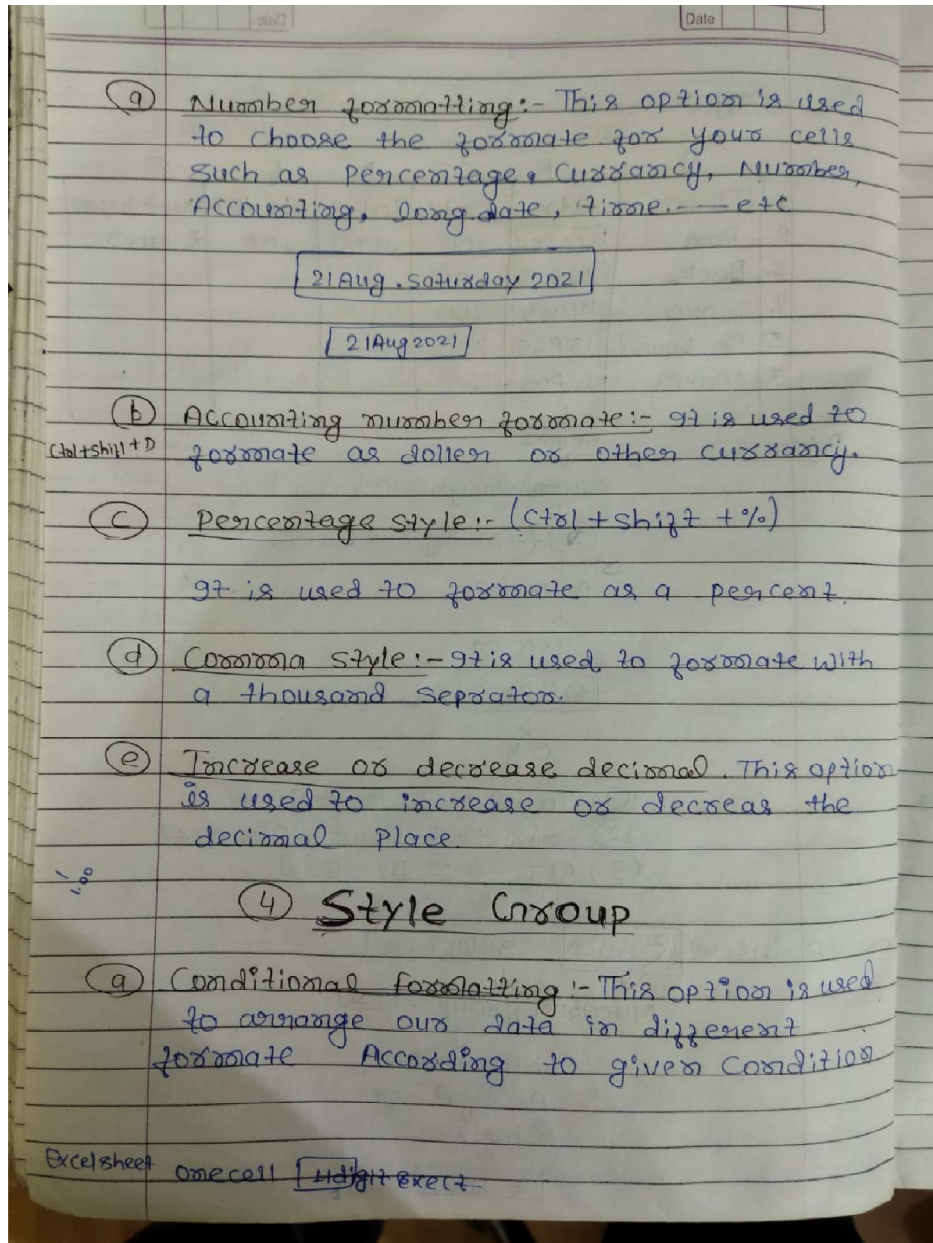 Date
(a) Number formatting:- This option is used
to choose the formate for your cells
such as Percentage, Currancy, Number,
Accounting, long date, time. — etc
21 Aug. Saturday 2021
21Aug2021
(b) Accounting number formate:- It is used to
Ctrl+Shift+D formate as doller or other currancy.
(c) Percentage style:- (Ctrl + Shift + %)
It is used to formate as a percent.
(d) Comma Style:- It is used to formate with
a thousand Seprator.
(e) Increase or decrease decimal. This option
is used to increase or decreas the
decimal Place.
1.00
(4) Style Group
(a) Conditional formatting:- This option is used
to arrange our data in different
formate According to given Condition
Excel sheet one cell 11digit exect